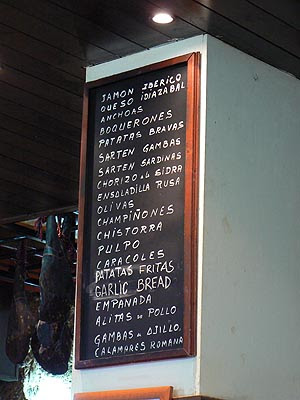 JAMON IBERICO
QUESO IDIAZABAL
ANCHOAS
BOQUERONES
PATATAS BRAVAS
SARTEN GAMBAS
SARTEN SARDINAS
CHORIZO a la SIDRA
ENSALADILLA RUSA
OLIVAS
CHAMPIÑONES
CHISTORRA
PULPO
CARACOLES
PATATAS FRITAS
GARLIC BREAD
EMPANADA
ALITAS DE POLLO
GAMBAS al AJILLO.
CALAMARES ROMANA